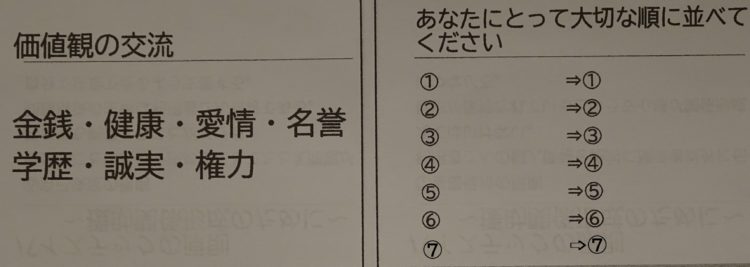 価値観の交流
金銭・健康・愛情・名誉
学歴・誠実・権力
あなたにとって大切な順に並べて
ください
① ⇒①
② ⇒②
③ ⇒③
④ ⇒④
⑤ ⇒⑤
⑥ ⇒⑥
⑦ ⇒⑦